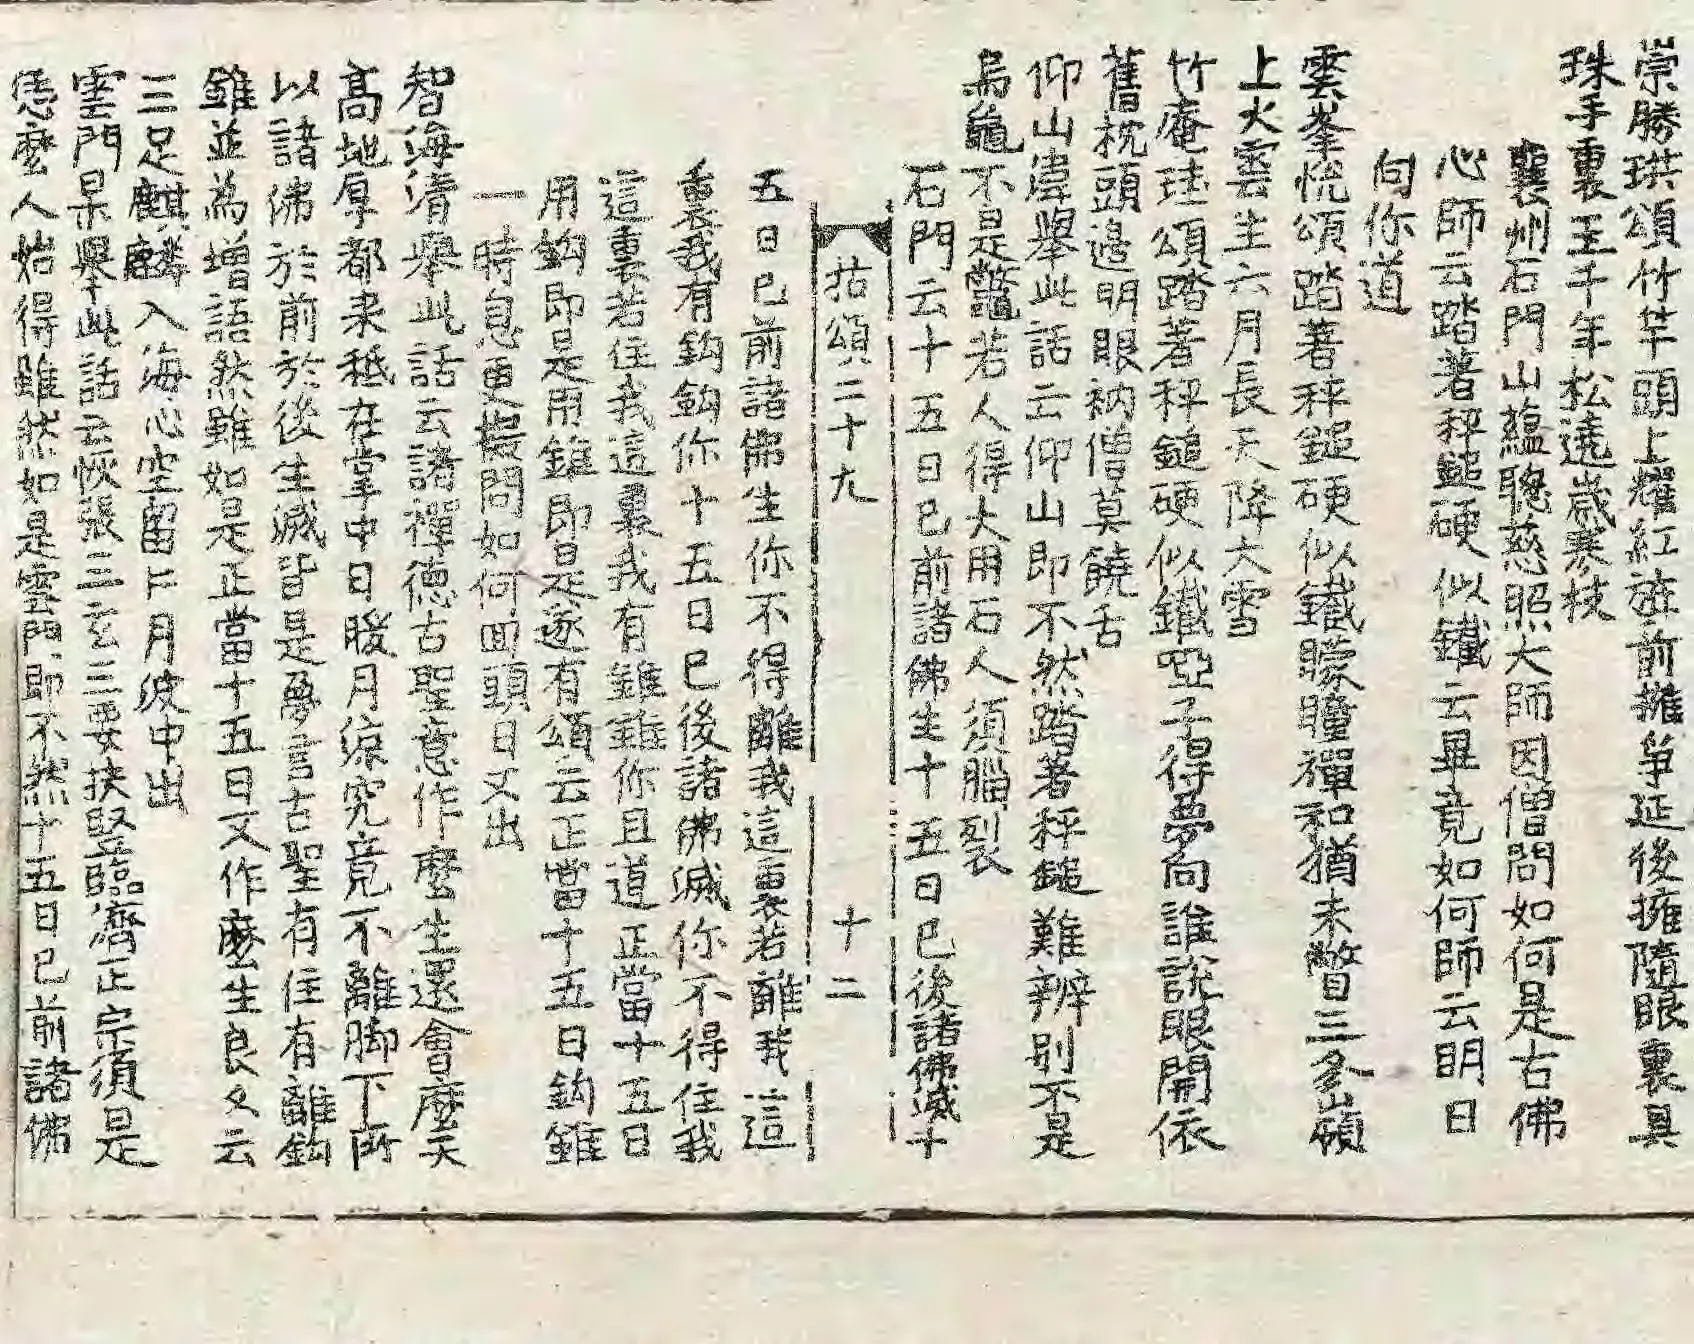 崇勝珙頌竹竿頭上耀紅旌前擁爭延後擁隨眼裏具
珠手裏玉千年松遶歲寒枝
襄州石門山蘊聰慈照大師因僧問如何是古佛
心師云踏著秤鎚硬似鐵云畢竟如何師云明日
向你道
雲峯悅頌踏著秤鎚硬似鐵矇瞳禪和猶未瞥三冬嶺
上火雲生六月長天降大雪
竹庵珪頌踏著秤鎚硬似鐵啞子得夢向誰說眼開依
舊枕頭邊明眼衲僧莫饒舌
仰山湋舉此話云仰山即不然踏著秤鎚難辨別不是
烏龜不是鼈若人得大用石人須腦裂
石門云十五日已前諸佛生十五日已後諸佛滅十
拈頌二十九 十二
五日已前諸佛生你不得離我這裏若離我這
裏我有鈎鈎你十五日已後諸佛滅你不得住我
這裏若住我這裏我有錐錐你且道正當十五日
用鈎即是用錐即是遂有頌云正當十五日鈎錐
一時息更擬問如何回頭日又出
智海清舉此話云諸禪德古聖意作麼生還會麼天
高地厚都來秪在掌中日暖月涼究竟不離脚下所
以諸佛於前於後生滅皆是夢言古聖有住有離鈎
錐並為增語然雖如是正當十五日又作麼生良久云
三足麒麟入海心空留片月波中出
雲門杲舉此話云恢張三玄三要扶竪臨濟正宗須是
恁麼人始得雖然如是雲門即不然十五日已前諸佛